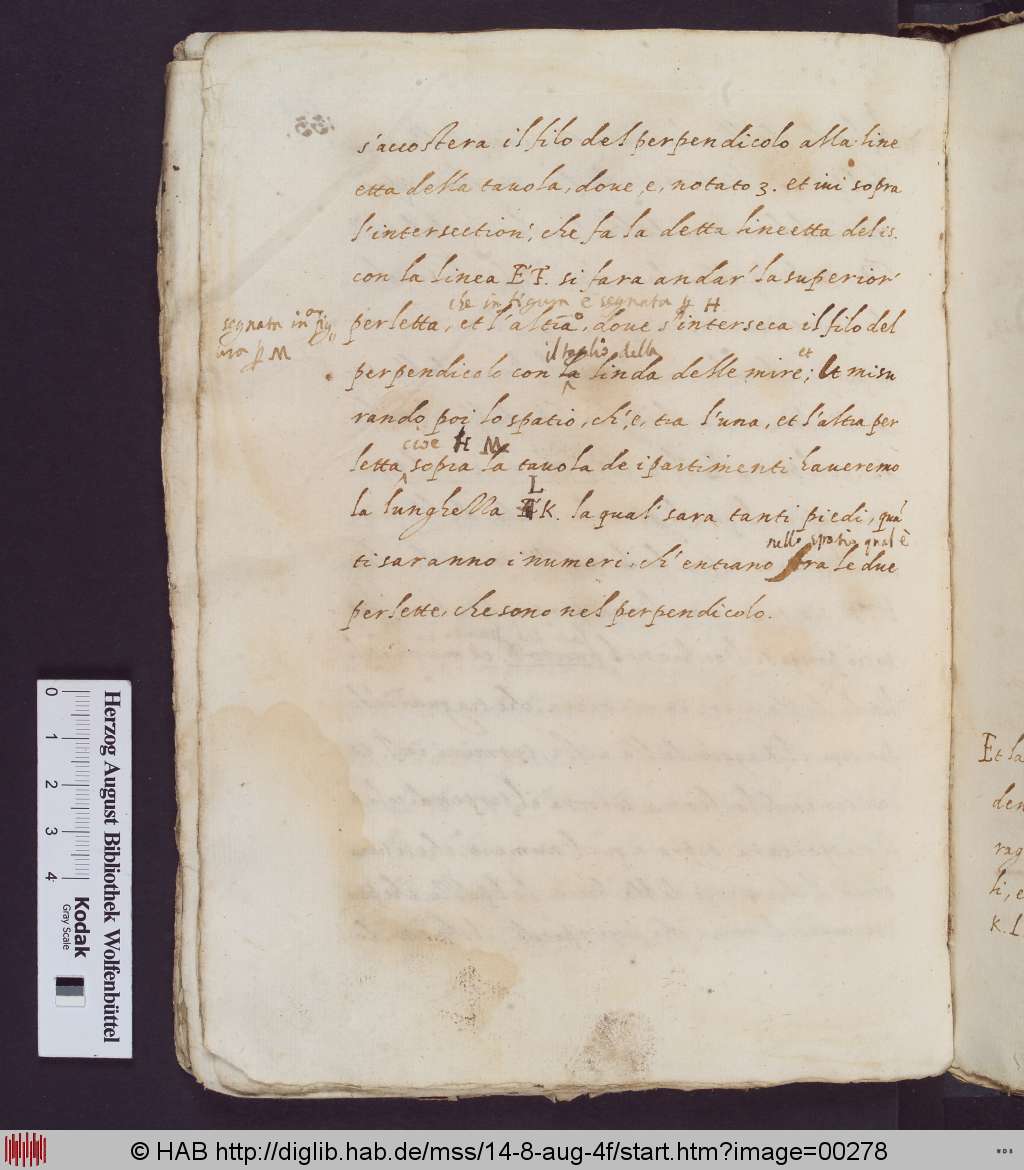 s'accostera il filo del perpendicolo alla line
etta della tauola, doue, e, notato 3. et iui sopra
l'intersection', che fa la detta lineetta del 15.
con la linea EF. si fara andar' la superior'
che in figura è segnata p H
segnata in
ura p M
perletta, et l'altra, doue s'interseca il filo del
il taglio della
perpendicolo con la linda delle mire; et misu
rando poi lo spatio, ch', e, tra l'una, et l'altra per
cioe H M
letta sopra la tauola de i partimenti haueremo
L
la lunghella K. la qual' sara tanti piedi, quá
nello spatio qual è
ti saranno i numeri, ch'entrano tra le due
perlette, che sono nel perpendicolo.
Et la
den
rag
li, e
K. L
0 1 2 3 4
Herzog August Bibliothek Wolfenbüttel
Kodak
Gray Scale
© HAB http://diglib.hab.de/mss/14-8-aug-4f/start.htm?image=00278